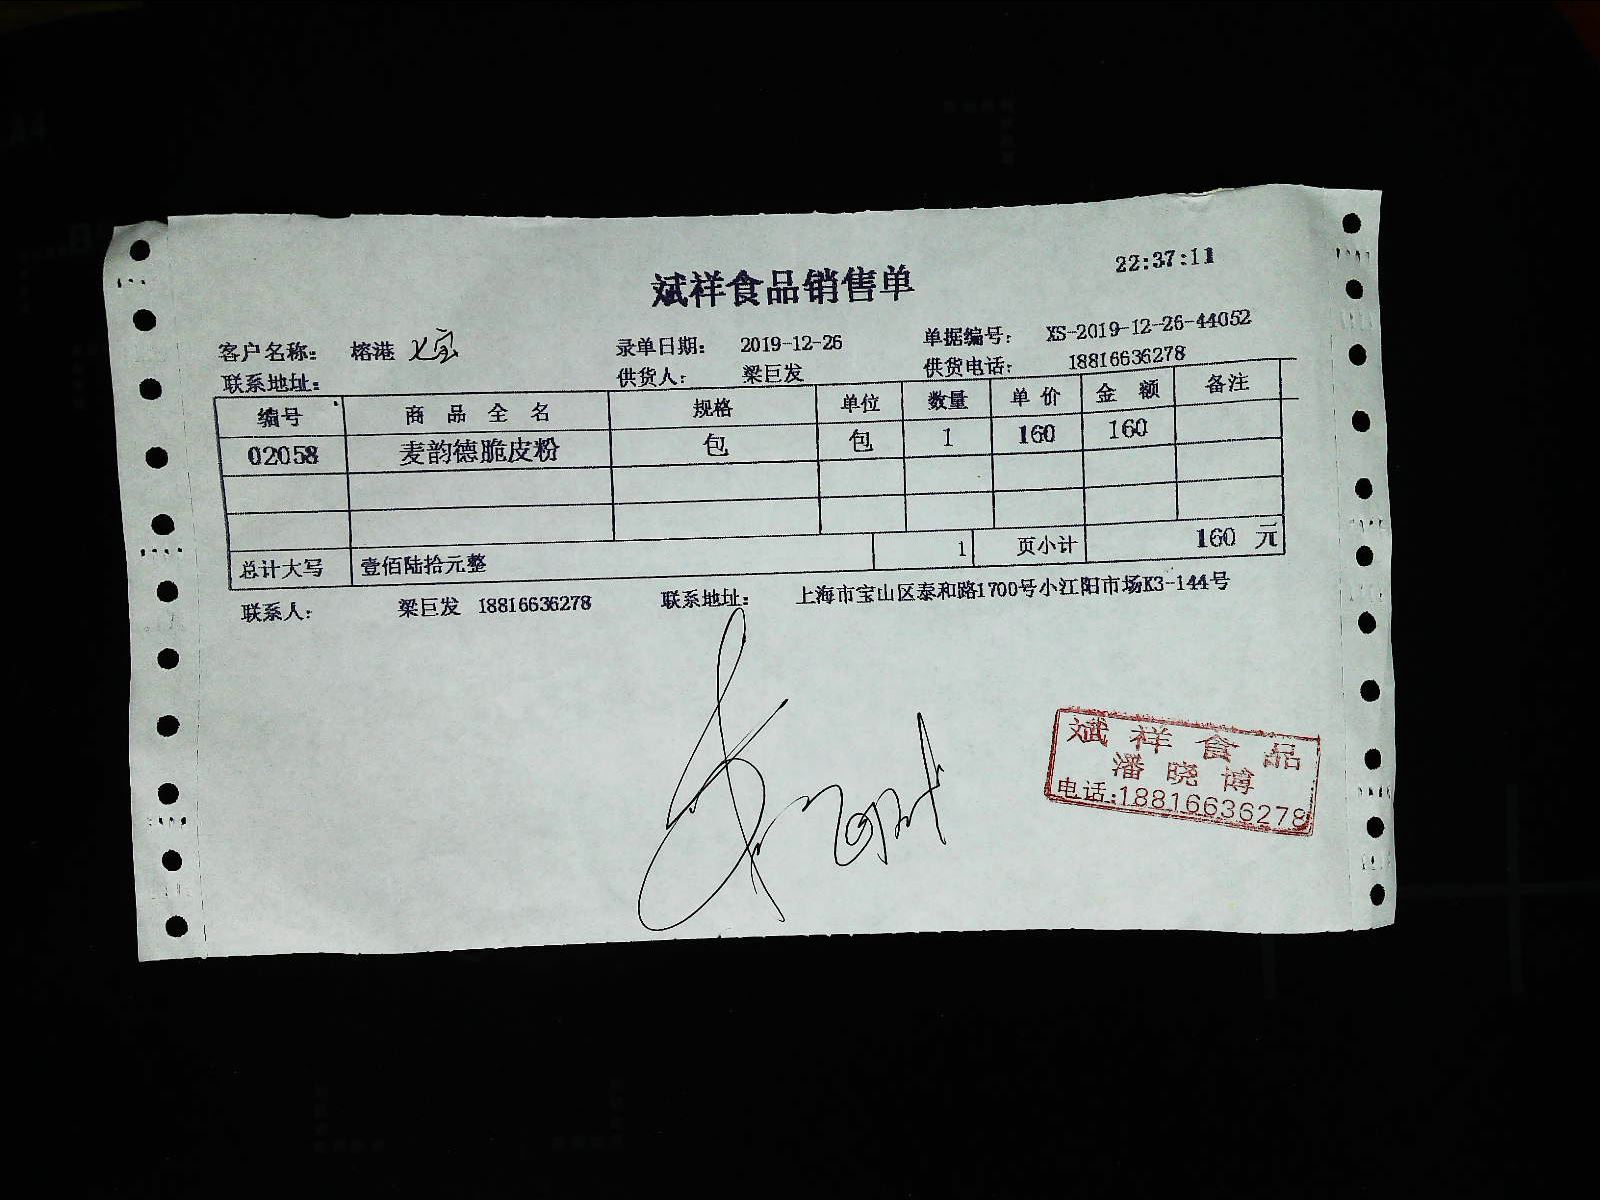 22:37:11
斌祥食品销售单
客户名称： 榕港 七宝 录单日期： 2019-12-26 单据编号： XS-2019-12-26-44052
联系地址： 供货人： 梁巨发 供货电话： 18816636278
编号 商品全名 规格 单位 数量 单价 金额 备注
02058 麦韵德脆皮粉 包 包 1 160 160
总计大写 壹佰陆拾元整 1 页小计 160 元
联系人： 梁巨发 18816636278 联系地址： 上海市宝山区泰和路1700号小江阳市场K3-144号
斌祥食品
潘晓博
电话:18816636278